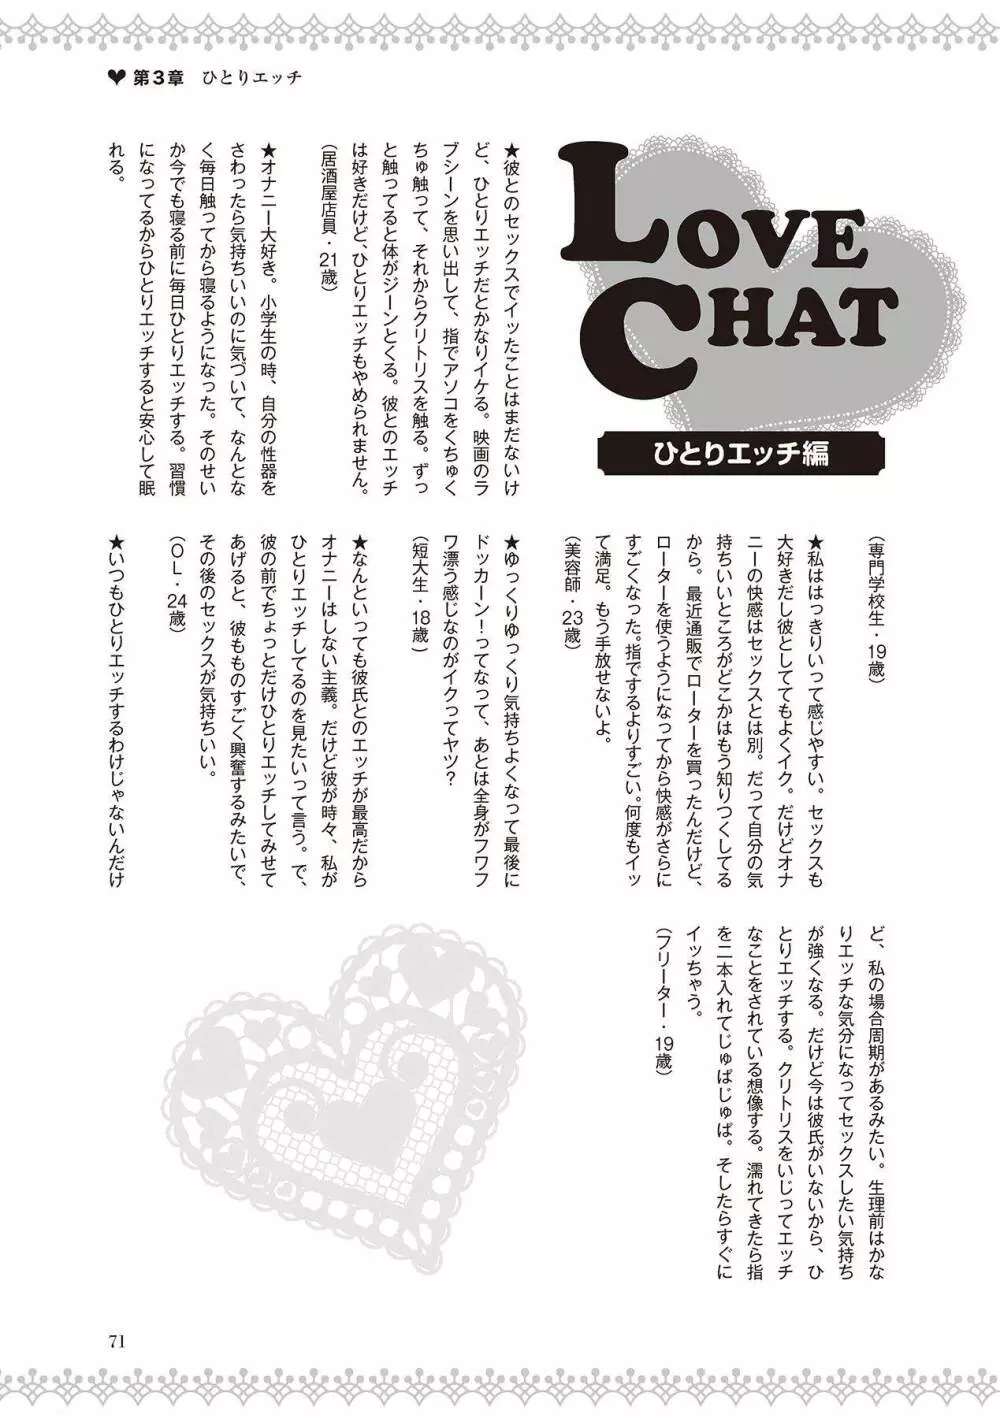 第3章 ひとりエッチ
LOVE
CHAT
ひとりエッチ編
★彼とのセックスでイッたことはまだないけ
ど、ひとりエッチだとかなりイケる。映画のラ
ブシーンを思い出して、指でアソコをくちゅく
ちゅ触って、それからクリトリスを触る。ずっ
と触ってると体がジーンとくる。彼とのエッチ
は好きだけど、ひとりエッチもやめられません。
(居酒屋店員・21歳)
★私ははっきりいって感じやすい。セックスも
大好きだし彼としててもよくイク。だけどオナ
ニーの快感はセックスとは別。だって自分の気
持ちいいところがどこかはもう知りつくしてる
から。最近通販でローターを買ったんだけど、
ローターを使うようになってから快感がさらに
すごくなった。指でするよりすごい。何度もイッ
て満足。もう手放せないよ。
(美容師・23歳)
★ゆっくりゆっくり気持ちよくなって最後に
ドッカーン!ってなって、あとは全身がフワフ
ワ漂う感じなのがイクってヤツ?
(短大生・18歳)
★なんといっても彼氏とのエッチが最高だから
オナニーはしない主義。だけど彼が時々、私が
ひとりエッチしてるのを見たいって言う。で、
彼の前でちょっとだけひとりエッチしてみせて
あげると、彼ものすごく興奮するみたいで、
その後のセックスが気持ちいい。
(OL・24歳)
★いつもひとりエッチするわけじゃないんだけ
ど、私の場合周期があるみたい。生理前はかな
りエッチな気分になってセックスしたい気持ち
が強くなる。だけど今は彼氏がいないから、ひ
とりエッチする。クリトリスをいじってエッチ
なことをされている想像する。濡れてきたら指
を二本入れてじゅぱじゅぱ。そしたらすぐに
イッちゃう。
(フリーター・19歳)
71